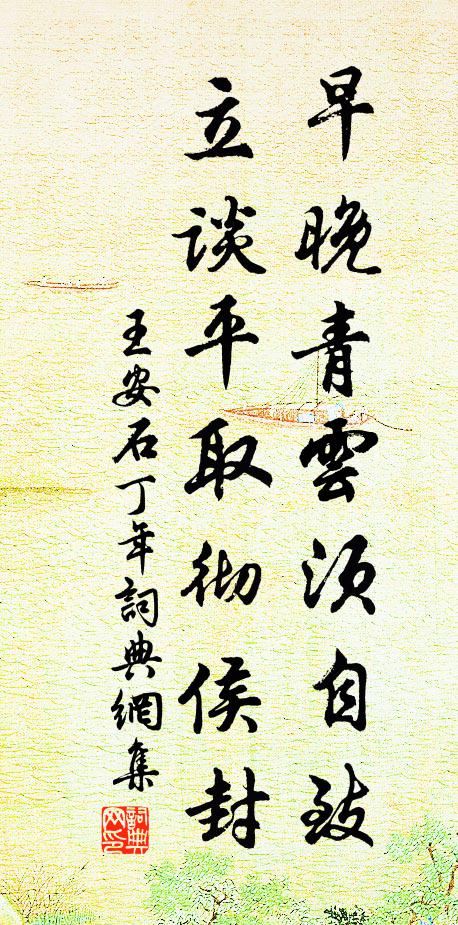 早晚青雲須自致
立談平取彻侯封
王安石丁年詞典網集
詞典網印